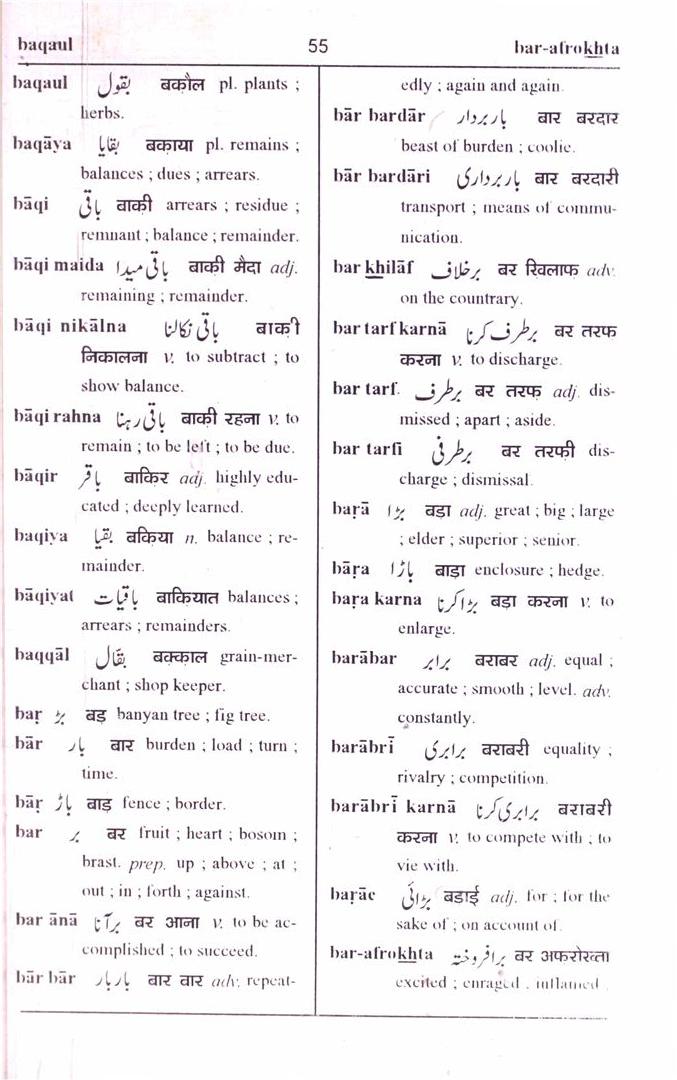 baqaul 55 bar-afrokhta
baqaul بقول बकौल pl. plants ;
herbs.
baqāya بقایا बकाया pl. remains ;
balances ; dues ; arrears.
bāqi باقی बाकी arrears ; residue ;
remnant ; balance ; remainder.
bāqi maida باقی میدا बाकी मैदा adj.
remaining ; remainder.
bāqi nikālna باقی نکالنا बाकी
निकालना v. to subtract ; to
show balance.
bāqi rahna باقی رہنا बाकी रहना v. to
remain ; to be left ; to be due.
bāqir باقر बाकिर adj. highly edu-
cated ; deeply learned.
baqiya بقیا बकिया n. balance ; re-
mainder.
bāqiyat باقیات बाकियात balances ;
arrears ; remainders.
baqqāl بقّال बक्काल grain-mer-
chant ; shop keeper.
baṛ بڑ बड़ banyan tree ; fig tree.
bār بار बार burden ; load ; turn ;
time.
bāṛ باڑ बाड़ fence ; border.
bar بر बर fruit ; heart ; bosom ;
brast. prep. up ; above ; at ;
out ; in ; forth ; against.
bar ānā برآنا बर आना v. to be ac-
complished ; to succeed.
bār bār باربار बार वार adv. repeat-
edly ; again and again.
bār bardār باربردار बार बरदार
beast of burden ; coolie.
bār bardāri باربرداری बार बरदारी
transport ; means of commu-
nication.
bar khilāf برخلاف बर खिलाफ adv.
on the countrary.
bar tarf karnā برطرف کرنا बर तरफ
करना v. to discharge.
bar tarf. برطرف बर तरफ़ adj. dis-
missed ; apart ; aside.
bar tarfi برطرفی बर तरफी dis-
charge ; dismissal.
baṛā بڑا बड़ा adj. great ; big ; large
; elder ; superior ; senior.
bāṛa باڑا बाड़ा enclosure ; hedge.
baṛa karna بڑا کرنا बड़ा करना v. to
enlarge.
barābar برابر बराबर adj. equal ;
accurate ; smooth ; level. adv.
constantly.
barābrī برابری बराबरी equality ;
rivalry ; competition.
barābrī karnā برابری کرنا बराबरी
करना v. to compete with ; to
vie with.
baṛāe بڑائی बडाई adj. for ; for the
sake of ; on account of.
bar-afrokhta برافروختہ बर अफरोख्ता
excited ; enraged . inflamed .